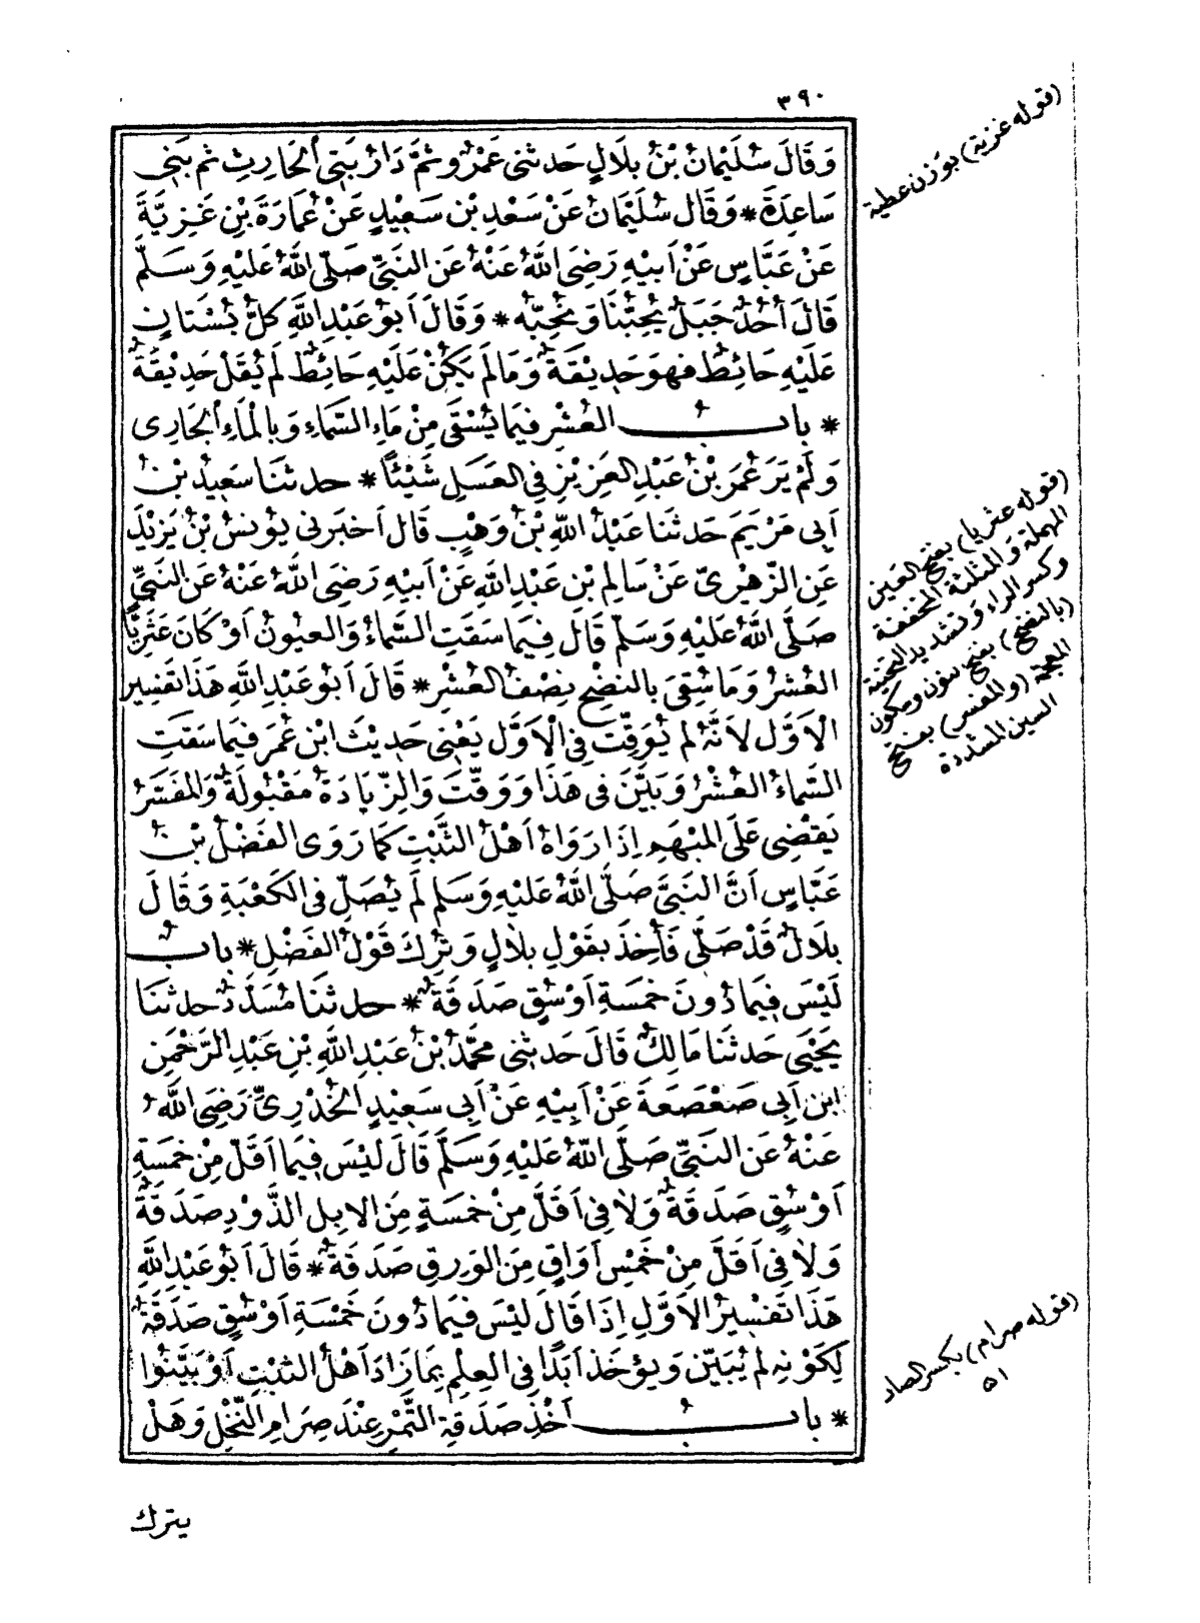 ٣٩٠
وَقَالَ سُلَيْمَانُ بْنُ بِلَالٍ حَدثنى عَمْرٌو ثُمَّ دَارُ بَنِى الْحَارِثِ ثم بَنِى
سَاعِدَةَ * وَقَال سُلَيْمَانُ عَنْ سَعْدِ بْنِ سَعِيْدٍ عَنْ عُمَارَةَ بْنِ غَزِيَّةَ
عَنْ عَبَّاسٍ عَنْ اَبِيْهِ رَضِىَ اللهُ عَنْهُ عَن النَّبِىِّ صَلَّى اللهُ عَلَيْهِ وَسَلَّمَ
قَالَ أُحُدٌ جَبَلٌ يُحِبُّنَا وَنُحِبُّهُ * وَقَالَ اَبُو عَبْدِ اللهِ كلُّ بُسْتَانٍ
عَلَيْهِ حَائِطٌ فهوَ حَدِيقَةٌ وَمَا لم يَكُنْ عَلَيْهِ حَائِطٌ لَمْ يُقَلْ حَدِيْقَةٌ
* بابُ العُشْرِ فيَما يُسْقَى مِنْ مَاءِ السَّمَاءِ وَبالْمَاءِ الْجَارِى
وَلَمْ يَرَ عُمَرُ بْنُ عَبْدِ العَزِيزِ فِى العَسَلِ شَيْئًا * حدثنَا سَعِيْدُ بْنُ
اَبِى مَرْيَمَ حَدثنا عَبْدُ اللهِ بْنُ وَهْبٍ قَال اَخبَرنى يُوْنسُ بْنُ يَزِيْدَ
عَنِ الزُّهْرِىّ عَنْ سَالِمِ بْنِ عَبْدِ اللهِ عَنْ اَبيْهِ رَضِىَ اللهُ عَنْهُ عَنِ النَّبِىِّ
صَلَّى اللهُ عَلَيْهِ وَسَلَّمَ قَالَ فِيمَا سَقَتِ السَّمَاءُ وَالعيُونُ اَوْ كَانَ عَثَرِيًّا
العُشْرُ وَمَا سُقِىَ بالنضْحِ نِصْفُ العُشْرِ * قَالَ اَبُو عَبْدِ اللهِ هَذَا تَفسِير
الْاَوَّلِ لاَنَّهُ لم يُوَقِّتْ فِى الْاَوَّل يَعْنِى حَدِيْثَ ابْنِ عُمَرَ فيمَا سَقَتِ
السَّمَاءُ العُشْرُ وَبَيَّنَ فِى هَذَا وَوَقَّتَ وَالزِّيَادَةُ مَقْبُولَةٌ وَالمُفَسَّرُ
يَقْضِى عَلَى المُبْهَمِ اِذَا رَوَاهُ اَهْلُ الثَّبْتِ كَمَا رَوَى الفَضْلُ بْنُ
عَبَّاسٍ اَنَّ النَّبِىَّ صَلَّى اللهُ عَلَيْهِ وَسَلم لَمْ يُصَلِّ فى الكَعْبَةِ وَقَالَ
بِلَالٌ قَدْ صَلَّى فَأُخِذَ بقَوْلِ بِلَالٍ وَتُرِكَ قَوْلُ الفَضْلِ * بابُ
لَيْسَ فِيمَا دُونَ خَمْسَةِ اَوْسُقٍ صَدَقَةٌ * حدثنَا مُسَدَّدٌ حدثنَا
يَحْيَى حَدثنَا مَالِكٌ قَالَ حَدثنِى مُحَمَّدُ بْنُ عَبْدِ اللهِ بْنِ عَبْدِ الرَّحْمَنِ
ابْنِ اَبِى صَعْصَعَةَ عَنْ اَبِيْهِ عَنْ اَبِى سَعِيْدٍ الخُدْرِىِّ رَضِىَ اللهُ
عَنْهُ عَن النَّبِىِّ صَلَّى اللهُ عَلَيْهِ وَسَلَّمَ قَالَ لَيْسَ فِيمَا اَقَلّ مِنْ خمَسَةِ
اَوْسُقٍ صَدَقَةٌ وَلَا فِى اَقَلَّ مِنْ خَمسَةٍ مِنَ الابِلِ الذَّوْدِ صَدَقَةٌ
وَلَا فِى اَقَلَّ مِنْ خَمْسِ اَوَاقٍ مِنَ الوَرِقِ صَدَقَةٌ * قَالَ اَبُو عَبْدِ اللهِ
هَذَا تَفْسِيْرُ الْاَوَّلِ اِذَا قَالَ لَيْسَ فيمَا دُونَ خَمْسَةِ اَوْسُقٍ صَدَقَةٌ
لِكَوْنِهِ لم يُبَيّن وَيؤخَذ اَبَدًا فِى العِلْمِ بِمَا زَادَ اَهْلُ الثبْتِ اَوْ بَيَّنُوا
* بابُ اَخْذِ صَدَقةِ التَّمْرِ عِنْدَ صِرَامِ النَّخْلِ وَهَلْ
يترك
(قوله غزية) بوزن عطية
(قوله عثريا) بفتح العين
المهملة والمثلثة المخففة
وكسر الراء وتشديد التحتية
(بالنضح) بفتح نون وسكون
المعجمة (والمفسر) بفتح
السين المشددة
(قوله صرام) بكسر الصاد
اه